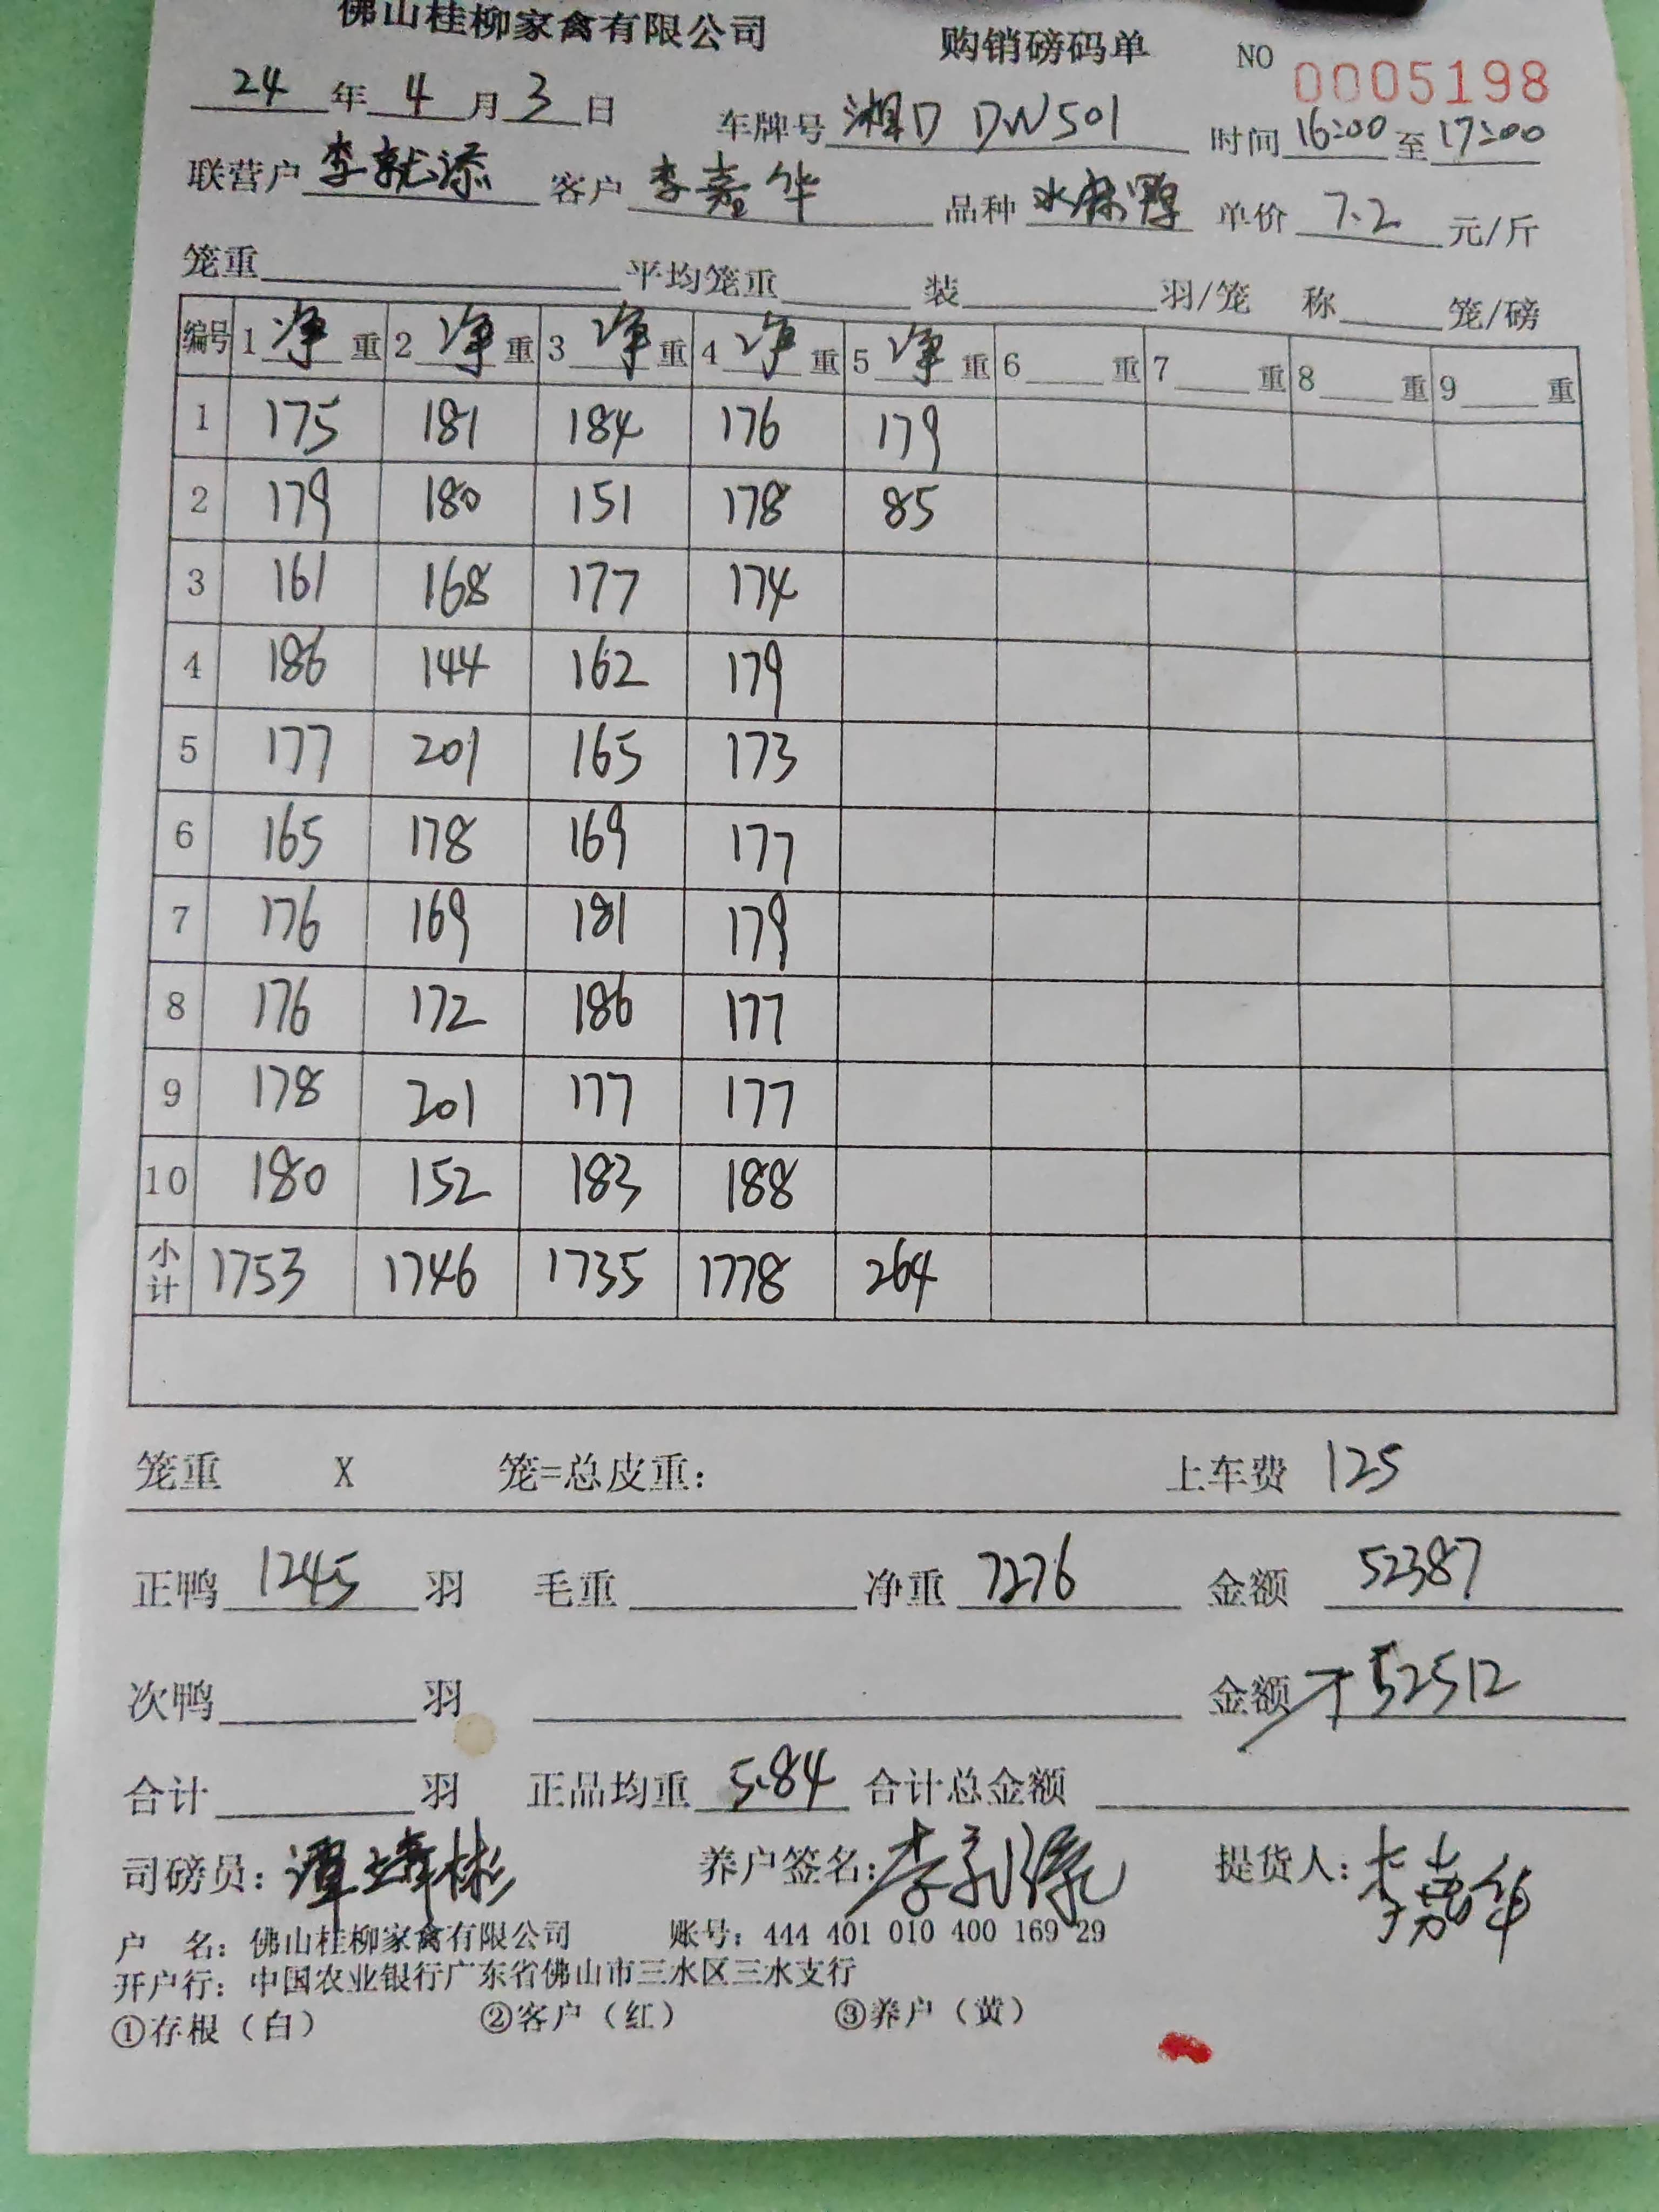 佛山桂柳家禽有限公司 购销磅码单 NO 0005198
24年4月3日 车牌号 湘D DW501 时间 16:00 至 17:00
联营户 李就添 客户 李嘉华 品种 水麻鸭 单价 7.2 元/斤
笼重 平均笼重 装 羽/笼 称 笼/磅
编号 1 净 重 2 净 重 3 净 重 4 净 重 5 净 重 6 重 7 重 8 重 9 重
1 175 181 184 176 179
2 179 180 151 178 85
3 161 168 177 174
4 186 144 162 179
5 177 201 165 173
6 165 178 169 177
7 176 169 181 179
8 176 172 186 177
9 178 201 177 177
10 180 152 183 188
小计 1753 1746 1735 1778 264
笼重 X 笼=总皮重: 上车费 125
正鸭 1245 羽 毛重 净重 7276 金额 52387
次鸭 羽 金额 52512
合计 羽 正品均重 5.84 合计总金额
司磅员: 养户签名: 提货人: 李嘉华
户 名: 佛山桂柳家禽有限公司 账号: 444 401 010 400 169 29
开户行: 中国农业银行广东省佛山市三水区三水支行
①存根(白) ②客户(红) ③养户(黄)